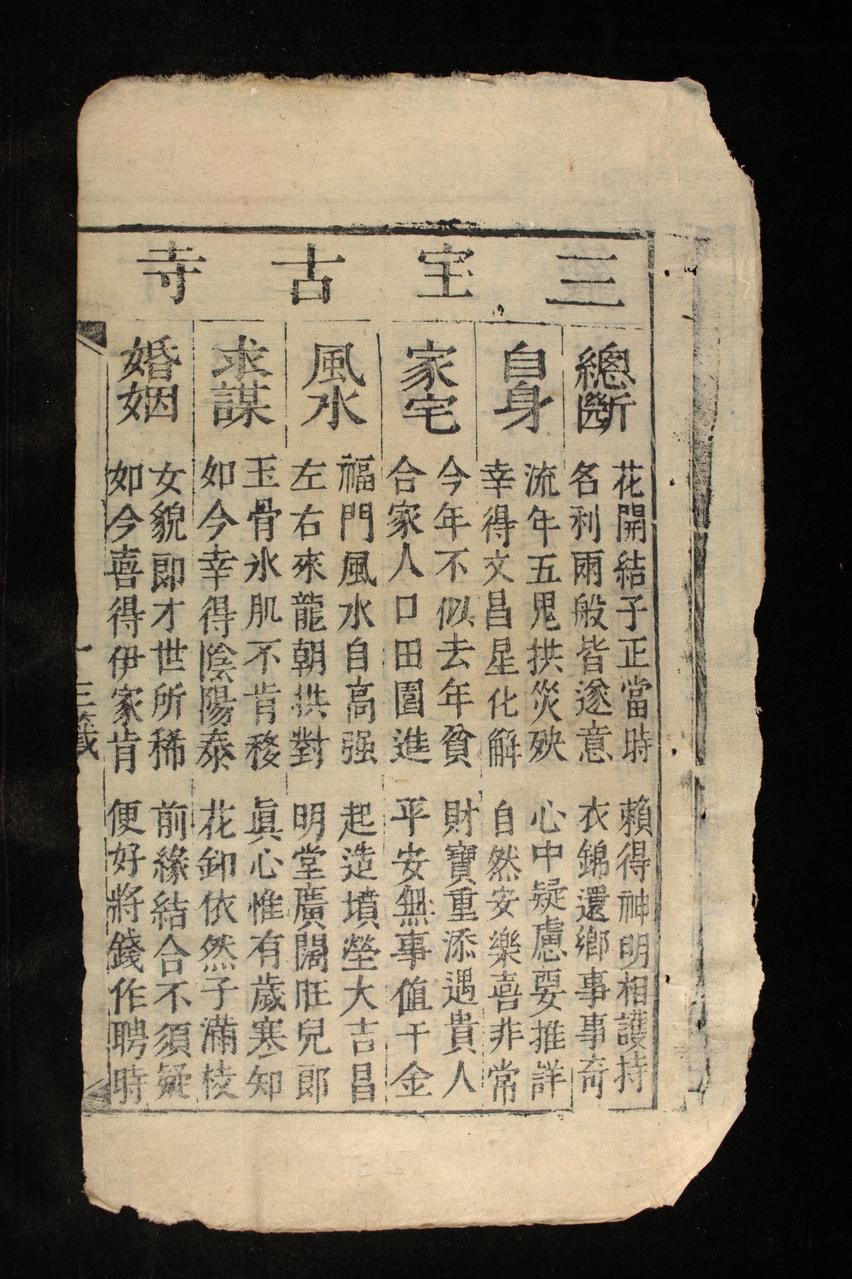 三宝古寺
總斷
花開結子正當時 賴得神明相護持
名利兩般皆遂意 衣錦還鄉事事奇
自身
流年五鬼拱災殃 心中疑慮要推詳
幸得文昌星化解 自然安樂喜非常
家宅
今年不似去年貧 財寶重添遇貴人
合家人口田園進 平安無事值千金
風水
福門風水自高强 起造墳塋大吉昌
左右來龍朝拱對 明堂廣闊旺兒郎
求謀
玉骨氷肌不肯移 眞心惟有歲寒知
如今幸得陰陽泰 花卸依然子滿枝
婚姻
女貌郎才世所稀 前緣結合不須疑
如今喜得伊家肯 便好將錢作聘時
三籤